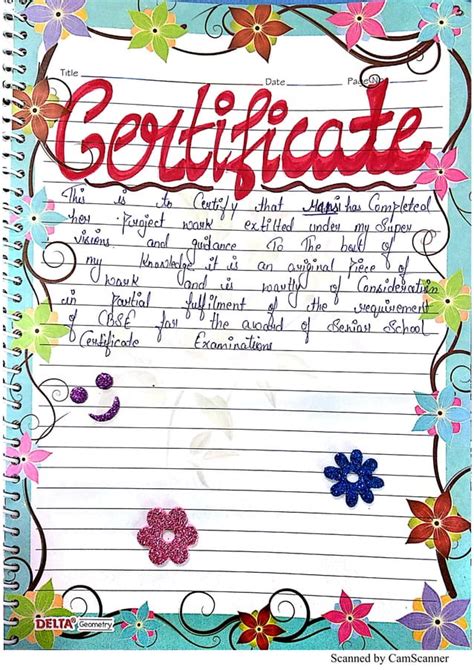 Title
Date
Page No.
Certificate
This is to Certify that Mansi has Completed
her Project work extitled under my Super
visions and guidance To The best of
my knowledge it is an original Piece of
work and is worthy of Consideration
in Partial fulfilment of the requirement
of CBSE for the award of Senior School
Certificate Examinations
DELTA
Geometry
Scanned by CamScanner